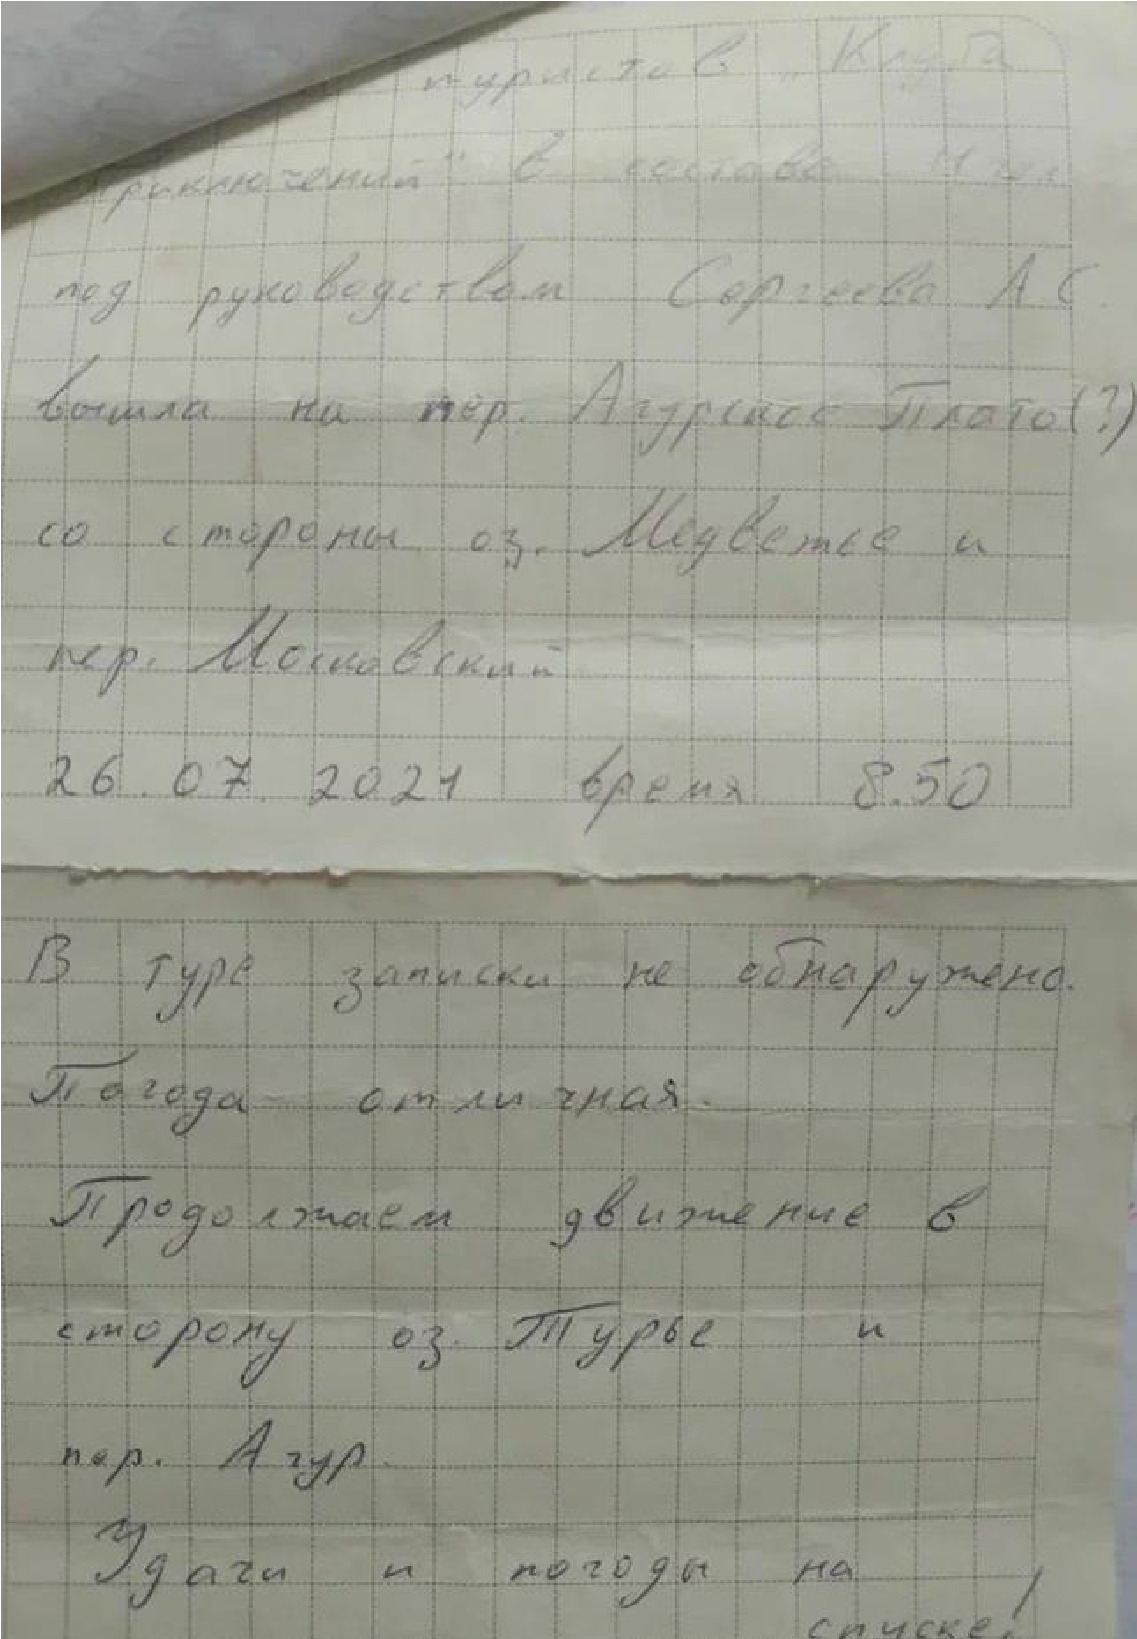 туристов "Клуба
Приключений" в составе 11 чел
под руководством Сергеева А.С.
вышла на пер. Агурское Плато(?)
со стороны оз. Медвежье и
пер. Московский
26.07.2021 время 8.50
В туре записки не обнаружено.
Погода отличная.
Продолжаем движение в
сторону оз. Турье и
пер. Агур
Удачи и погоды на
спуске!